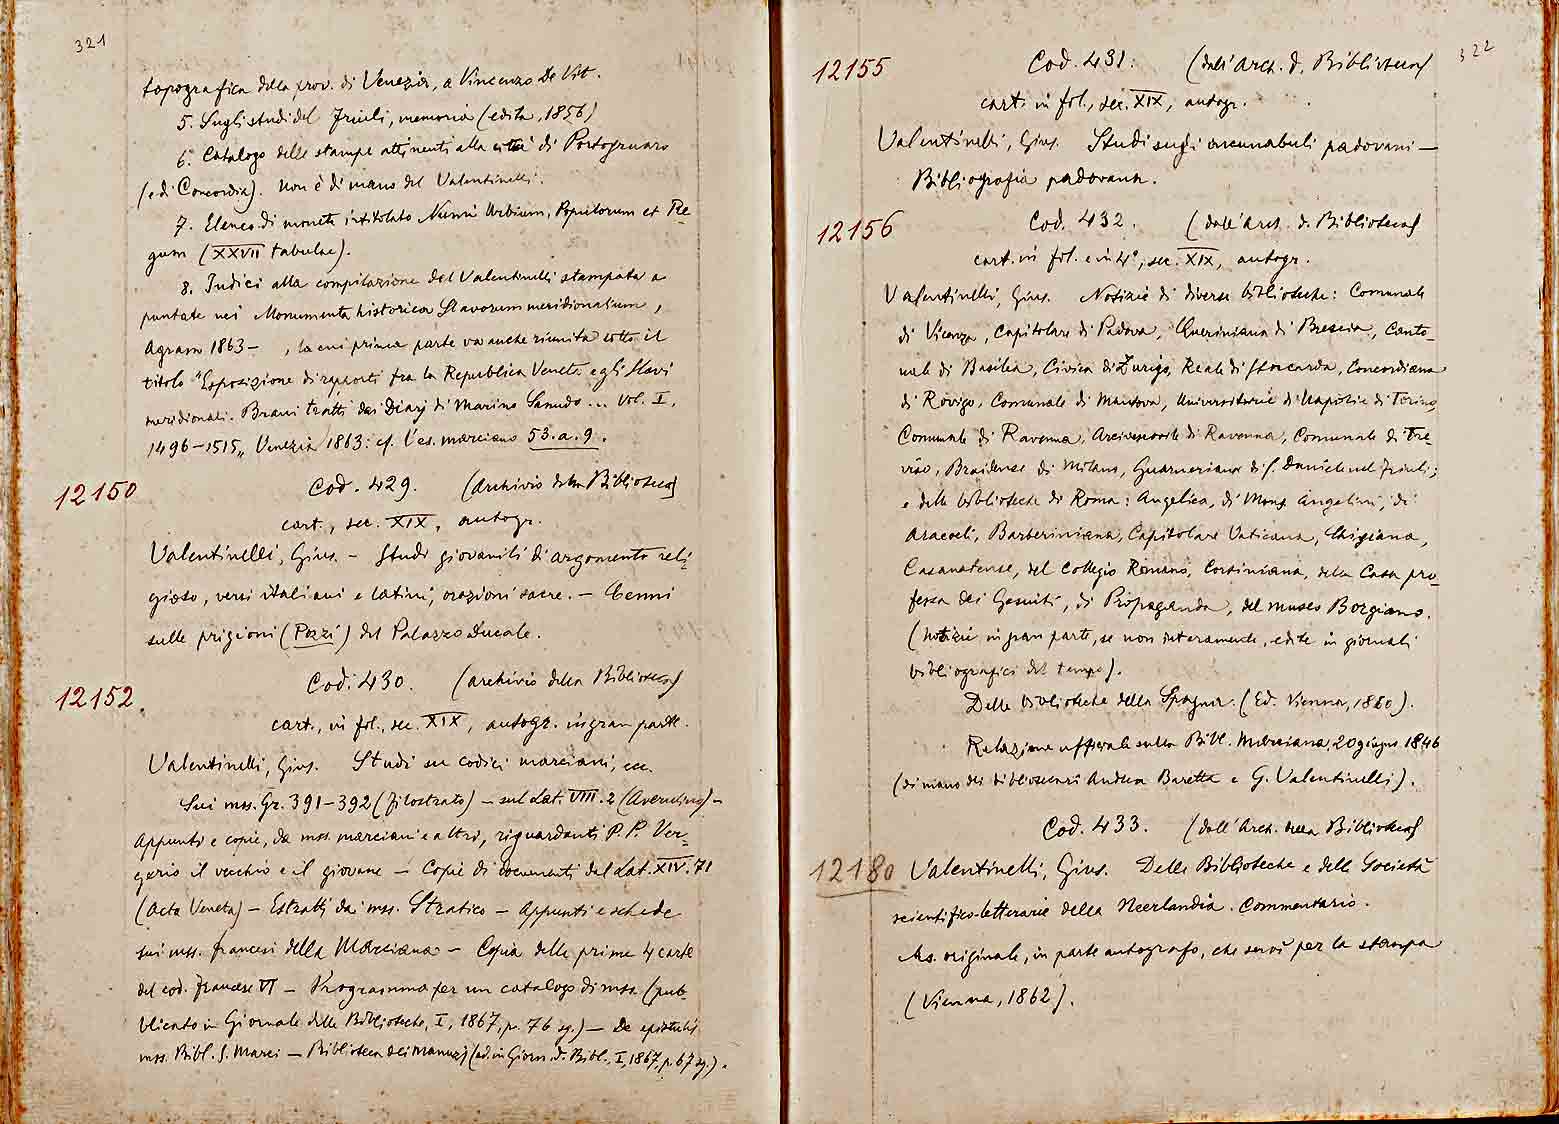 321
topografica della prov. di Venezia, a Vincenzo De Vit.
5. Sugli studi del Friuli, memoria (edita, 1856)
6. Catalogo delle stampe attinenti alla città di Portogruaro
(e di Concordia). Non è di mano del Valentinelli.
7. Elenco di monete intitolato Numi Urbium, Populorum et Re
gum (XXVII tabulae).
8. Indici alla compilazione del Valentinelli stampata a
puntate nei Monumenta historica Slavorum meridionalium,
Agram 1863 - , la cui prima parte va anche riunita sotto il
titolo "Esposizione di rapporti fra la Repubblica Veneta e gli Slavi
meridionali. Brani tratti dai Diarj di Marino Sanudo ... Vol. I,
1496-1515", Venezia 1863: cf. l'es. marciano 53.a.9.
12150
Cod. 429. (Archivio della Biblioteca)
cart., sec. XIX, autogr.
Valentinelli, Gius. - Studi giovanili di argomento reli-
gioso, versi italiani e latini, orazioni sacre. - Cenni
sulle prigioni (Pozzi) del Palazzo Ducale.
12152.
Cod. 430. (archivio della Biblioteca)
cart., in fol., sec. XIX, autogr. in gran parte.
Valentinelli, Gius. Studi su codici marciani, ecc.
Sui mss. Gr. 391-392 (Filostrato) - sul Lat. VIII.2 (Averulino) -
Appunti e copie, da mss. marciani e altri, riguardanti P. P. Ver=
gerio il vecchio e il giovane - Copie di documenti del Lat. XIV.71
(Acta Veneta) - Estratti dai mss. Stratico - Appunti e schede
sui mss. francesi della Marciana - Copia delle prime 4 carte
del cod. francese VI - Programma per un catalogo di mss. (pub-
blicato in Giornale delle Biblioteche, I, 1867, p. 76 sg.) - De epistulis
mss. Bibl. S. Marci - Biblioteca dei Manuzj (ed. in Giorn. d. Bibl., I, 1867, p. 67 sg.).
322
12155
Cod. 431. (dall'Arch. d. Biblioteca)
cart. in fol., sec. XIX, autogr.
Valentinelli, Gius. Studi sugli incunabuli padovani -
Bibliografia padovana.
12156
Cod. 432. (dall'Arch. d. Biblioteca)
cart. in fol. e in 4°, sec. XIX, autogr.
Valentinelli, Gius. Notizie di diverse biblioteche: Comunale
di Vicenza, Capitolare di Padova, Queriniana di Brescia, Canto-
nale di Basilea, Civica di Zurigo, Reale di Stoccarda, Concordiana
di Rovigo, Comunale di Mantova, Universitarie di Napoli e di Torino,
Comunale di Ravenna, Arcivescovile di Ravenna, Comunale di Tre-
viso, Braidense di Milano, Guarneriana di S. Daniele nel Friuli;
e delle biblioteche di Roma: Angelica, di Mons. Angelini, di
Aracoeli, Barberiniana, Capitolare Vaticana, Chigiana,
Casanatense, del Collegio Romano, Corsiniana, della Casa pro-
fessa dei Gesuiti, di Propaganda, del museo Borgiano.
(Notizie in gran parte, se non interamente, edite in giornali
bibliografici del tempo).
Delle biblioteche della Spagna. (Ed. Vienna, 1860).
Relazione ufficiale sulla Bibl. Marciana, 20 giugno 1846
(di mano dei bibliotecari Andrea Baretta e G. Valentinelli).
Cod. 433. (dall'Arch. della Biblioteca)
12180
Valentinelli, Gius. Delle Biblioteche e delle Società
scientifico-letterarie della Neerlandia. Commentario.
Ms. originale, in parte autografo, che servì per la stampa
(Vienna, 1862).